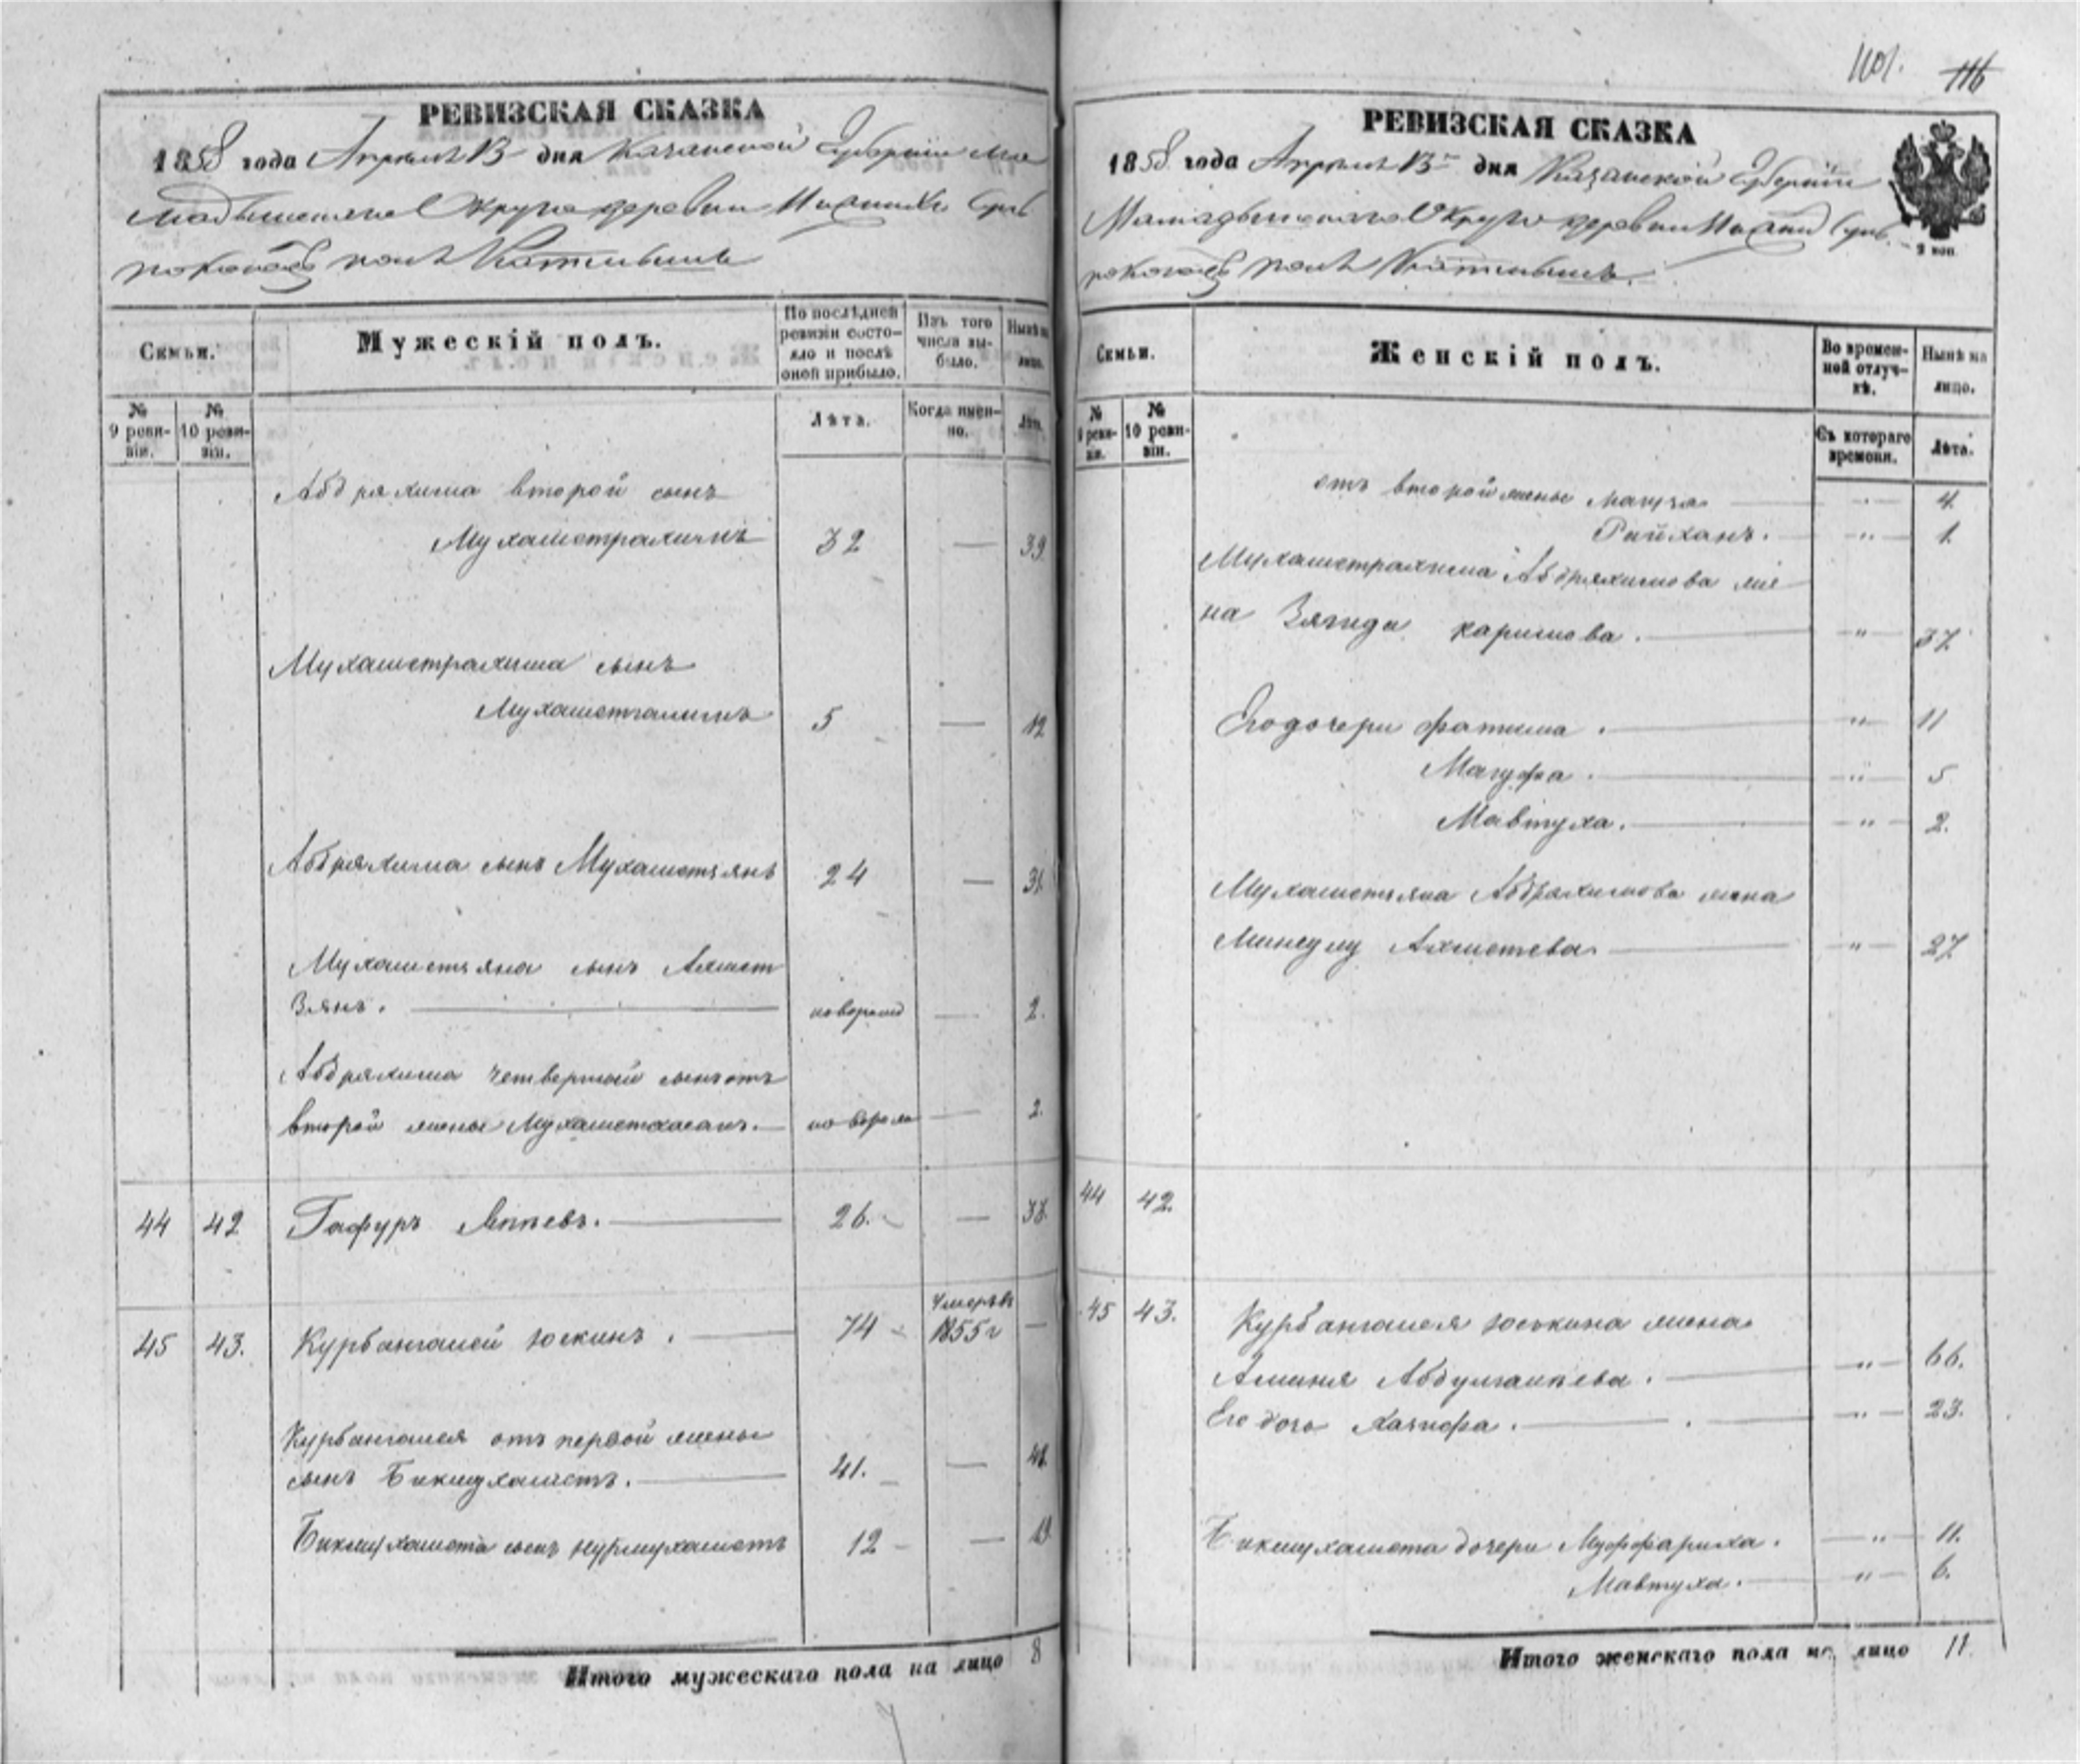 РЕВИЗСКАЯ СКАЗКА
1858 года Апреля 13 дня Казанской Губернии Ма
мадышскаго Округа деревни
По послѣдней ревизіи состояло и послѣ оной прибыло.
Изъ того числа выбыло.
Нынѣ на лицо.
Семьи.
Мужескій полъ.
№ 9 ревизіи.
№ 10 ревизіи.
Лѣта.
Когда именно.
Лѣта.
Абдряхима второй сынъ
Мухаметрахимъ 32 — 39
Мухаметрахима сынъ
Мухаметгалимъ 5 — 12
Абдряхима сынъ Мухаметзянъ 24 — 31
Мухаметзяна сынъ Ахмет
Зянъ. — новорожд — 2.
Абдряхима четвертый сынъ отъ
второй жены Мухаметхасанъ. — новорож — 2.
44 42 Гафуръ — 26. — 33.
умеръ въ
45 43. Курбангалей Юскинъ. — 74 1855 г —
Курбангалея отъ первой жены
сынъ Бикмухаметъ. — 41. — 48.
Бикмухамета сынъ Нурмухаметъ 12 — 19
Итого мужескаго пола на лицо 8
1101. 116
РЕВИЗСКАЯ СКАЗКА
1858 года Апреля 13 дня Казанской Губерніи
Мамадышскаго Округа деревни
2 коп.
Семьи.
Женскій полъ.
Во временной отлучкѣ.
Нынѣ на лицо.
№ 9 ревизіи.
№ 10 ревизіи.
Съ котораго времени.
Лѣта.
отъ второй жены — 4
Райханъ. — " — 1.
Мухаметрахима Абдряхимова же
на Зягида каримова. — " — 37
Его дочери Фатима. — " — 11
Магуфа. — " — 5
Мавтуха. — " — 2.
Мухаметзяна Абдряхимова жена
Ахметева — " — 27
44 42.
45 43. Курбангалея Юськина жена
Аминя — " — 66.
Его дочь Хатифа. — " — 23.
Бикмухамета дочери Муффариха. — " — 11.
Мавтуха. — " — 6.
Итого женскаго пола на лицо 11